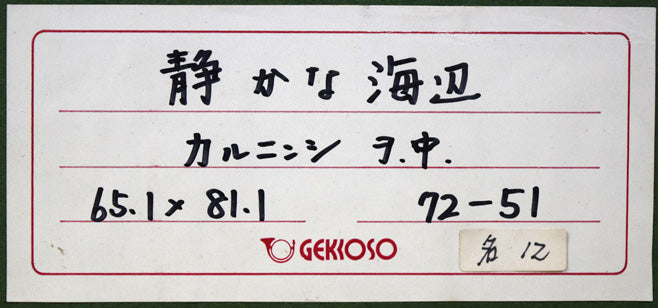 静かな海辺
カルニンシ ヲ.中.
65.1× 81.1 72-51
GEKKOSO 名 12